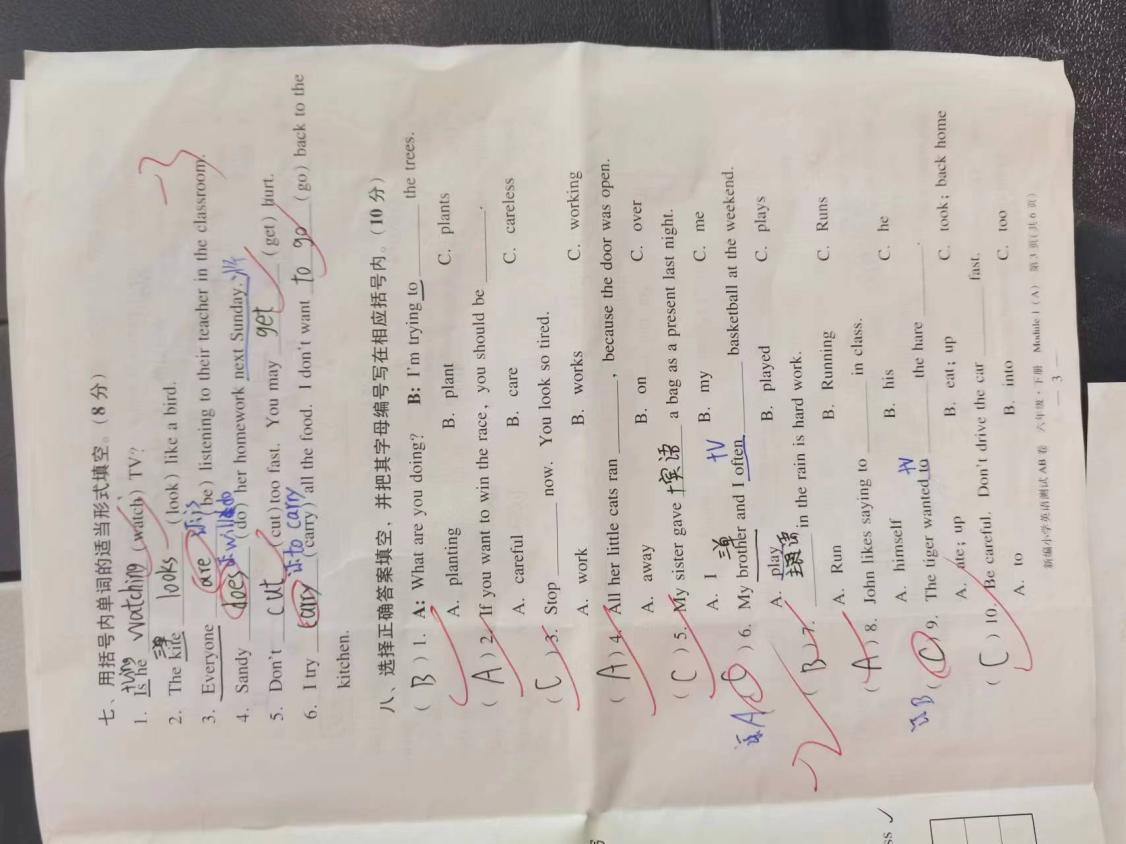 七、用括号内单词的适当形式填空。(8 分)
-3
1. Is he watching (watch) TV?
2. The kite looks (look) like a bird.
3. Everyone are (be) listening to their teacher in the classroom. 订is
4. Sandy does (do) her homework next Sunday. 订will do
5. Don't cut (cut) too fast. You may get (get) hurt.
6. I try carry (carry) all the food. I don't want to go (go) back to the
订to carry
kitchen.
八、选择正确答案填空，并把其字母编号写在相应括号内。(10 分)
( B ) 1. A: What are you doing? B: I'm trying to ______ the trees.
A. planting B. plant C. plants
( A ) 2. If you want to win the race, you should be ______.
A. careful B. care C. careless
( C ) 3. Stop ______ now. You look so tired.
A. work B. works C. working
( A ) 4. All her little cats ran ______, because the door was open.
A. away B. on C. over
( C ) 5. My sister gave 宾语 a bag as a present last night.
A. I B. my C. me
订A ( C ) 6. My brother and I often ______ basketball at the weekend.
A. play B. played C. plays
( B ) 7. ______ in the rain is hard work.
A. Run B. Running C. Runs
( A ) 8. John likes saying to ______ in class.
A. himself B. his C. he
订B ( C ) 9. The tiger wanted to ______ the hare ______.
A. ate; up B. eat; up C. took; back home
( C ) 10. Be careful. Don't drive the car ______ fast.
A. to B. into C. too
新编小学英语测试AB卷 六年级·下册 Module 1 (A) 第3页(共6页)
— 3 —
ss ✓